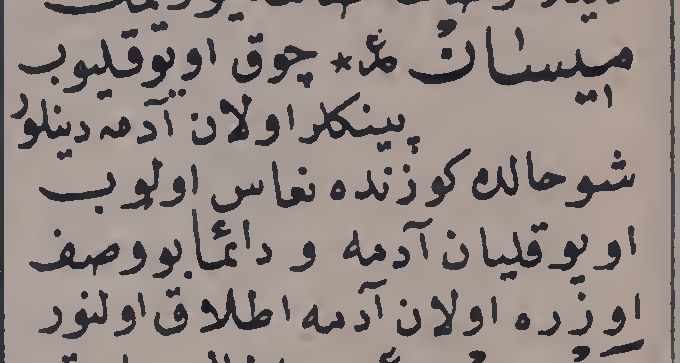 ميسان ع * چوق اويوقليوب
پينكلر اولان آدمه دينلور
شو حالده كوزنده نعاس اولوب
اويوقليان آدمه و دائما بو وصف
اوزره اولان آدمه اطلاق اولنور